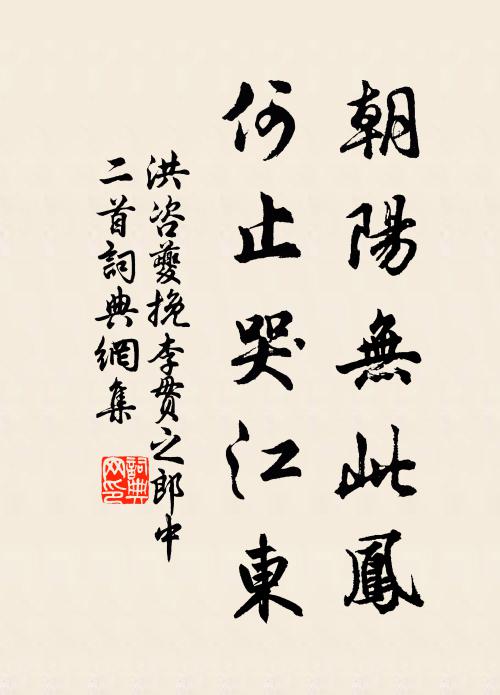 朝陽無此鳳
何止哭江東
洪咨夔挽李貫之郎中
二首詞典網集
詞典
网印